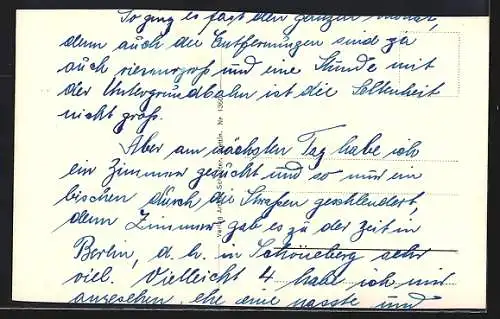 So ging es fast den ganzen Monat,
denn auch die Entfernungen sind ja
auch riesengroß und eine Stunde mit
der Untergrundbahn ist die Seltenheit
nicht groß.
Aber am nächsten Tag habe ich
ein Zimmer gesucht und so nur ein
bischen durch die Straßen geschlendert,
denn Zimmer gab es zu der Zeit in
Berlin, d. h. in Schöneberg sehr
viel. Vielleicht 4 habe ich mir
angesehen, ehe eine passte und
Verlag Berlin. Nr.